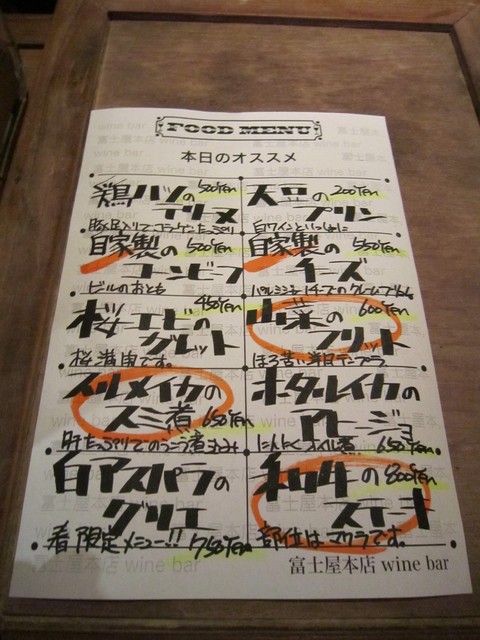 FOOD MENU
本日のオススメ
鶏ハツの 500Yen
テリーヌ
豚足入りでコラーゲンたっぷり
天豆の 200Yen
プリン
白ワインといっしょに
自家製の 500Yen
コンビーフ
ビールのおとも
自家製の 550Yen
チーズ
桜エビの 450Yen
グレット
桜満開です。
山菜の 600Yen
フリット
ほろ苦い洋風テンプラ
スルメイカの
スミ煮 650Yen
ホタルイカの
アヒージョ
にんにくオイル煮 650Yen
白アスパラの
グリエ
春限定メニュー!! 750Yen
和牛の 800Yen
ステーキ
部位はマクラです。
富士屋本店 wine bar